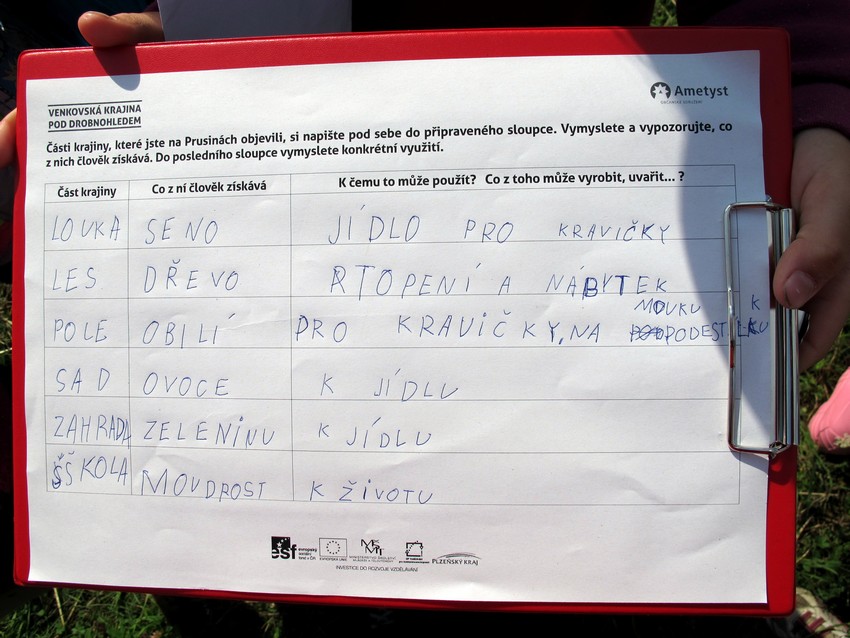 VENKOVSKÁ KRAJINA
POD DROBNOHLEDEM
Ametyst
Části krajiny, které jste na Prusinách objevili, si napište pod sebe do připraveného sloupce. Vymyslete a vypozorujte, co
z nich člověk získává. Do posledního sloupce vymyslete konkrétní využití.
Část krajiny Co z ní člověk získává K čemu to může použít? Co z toho může vyrobit, uvařit... ?
LOUKA SENO JÍDLO PRO KRAVIČKY
LES DŘEVO RTOPENÍ A NÁBYTEK
MOUKU K
POLE OBILÍ PRO KRAVIČKY, NA PODESTLKU
SAD OVOCE K JÍDLU
ZAHRADA ZELENINU K JÍDLU
ŠŠKOLA MOUDROST K ŽIVOTU
esf evropský sociální fond v ČR EVROPSKÁ UNIE PLZEŇSKÝ KRAJ
INVESTICE DO ROZVOJE VZDĚLÁVÁNÍ